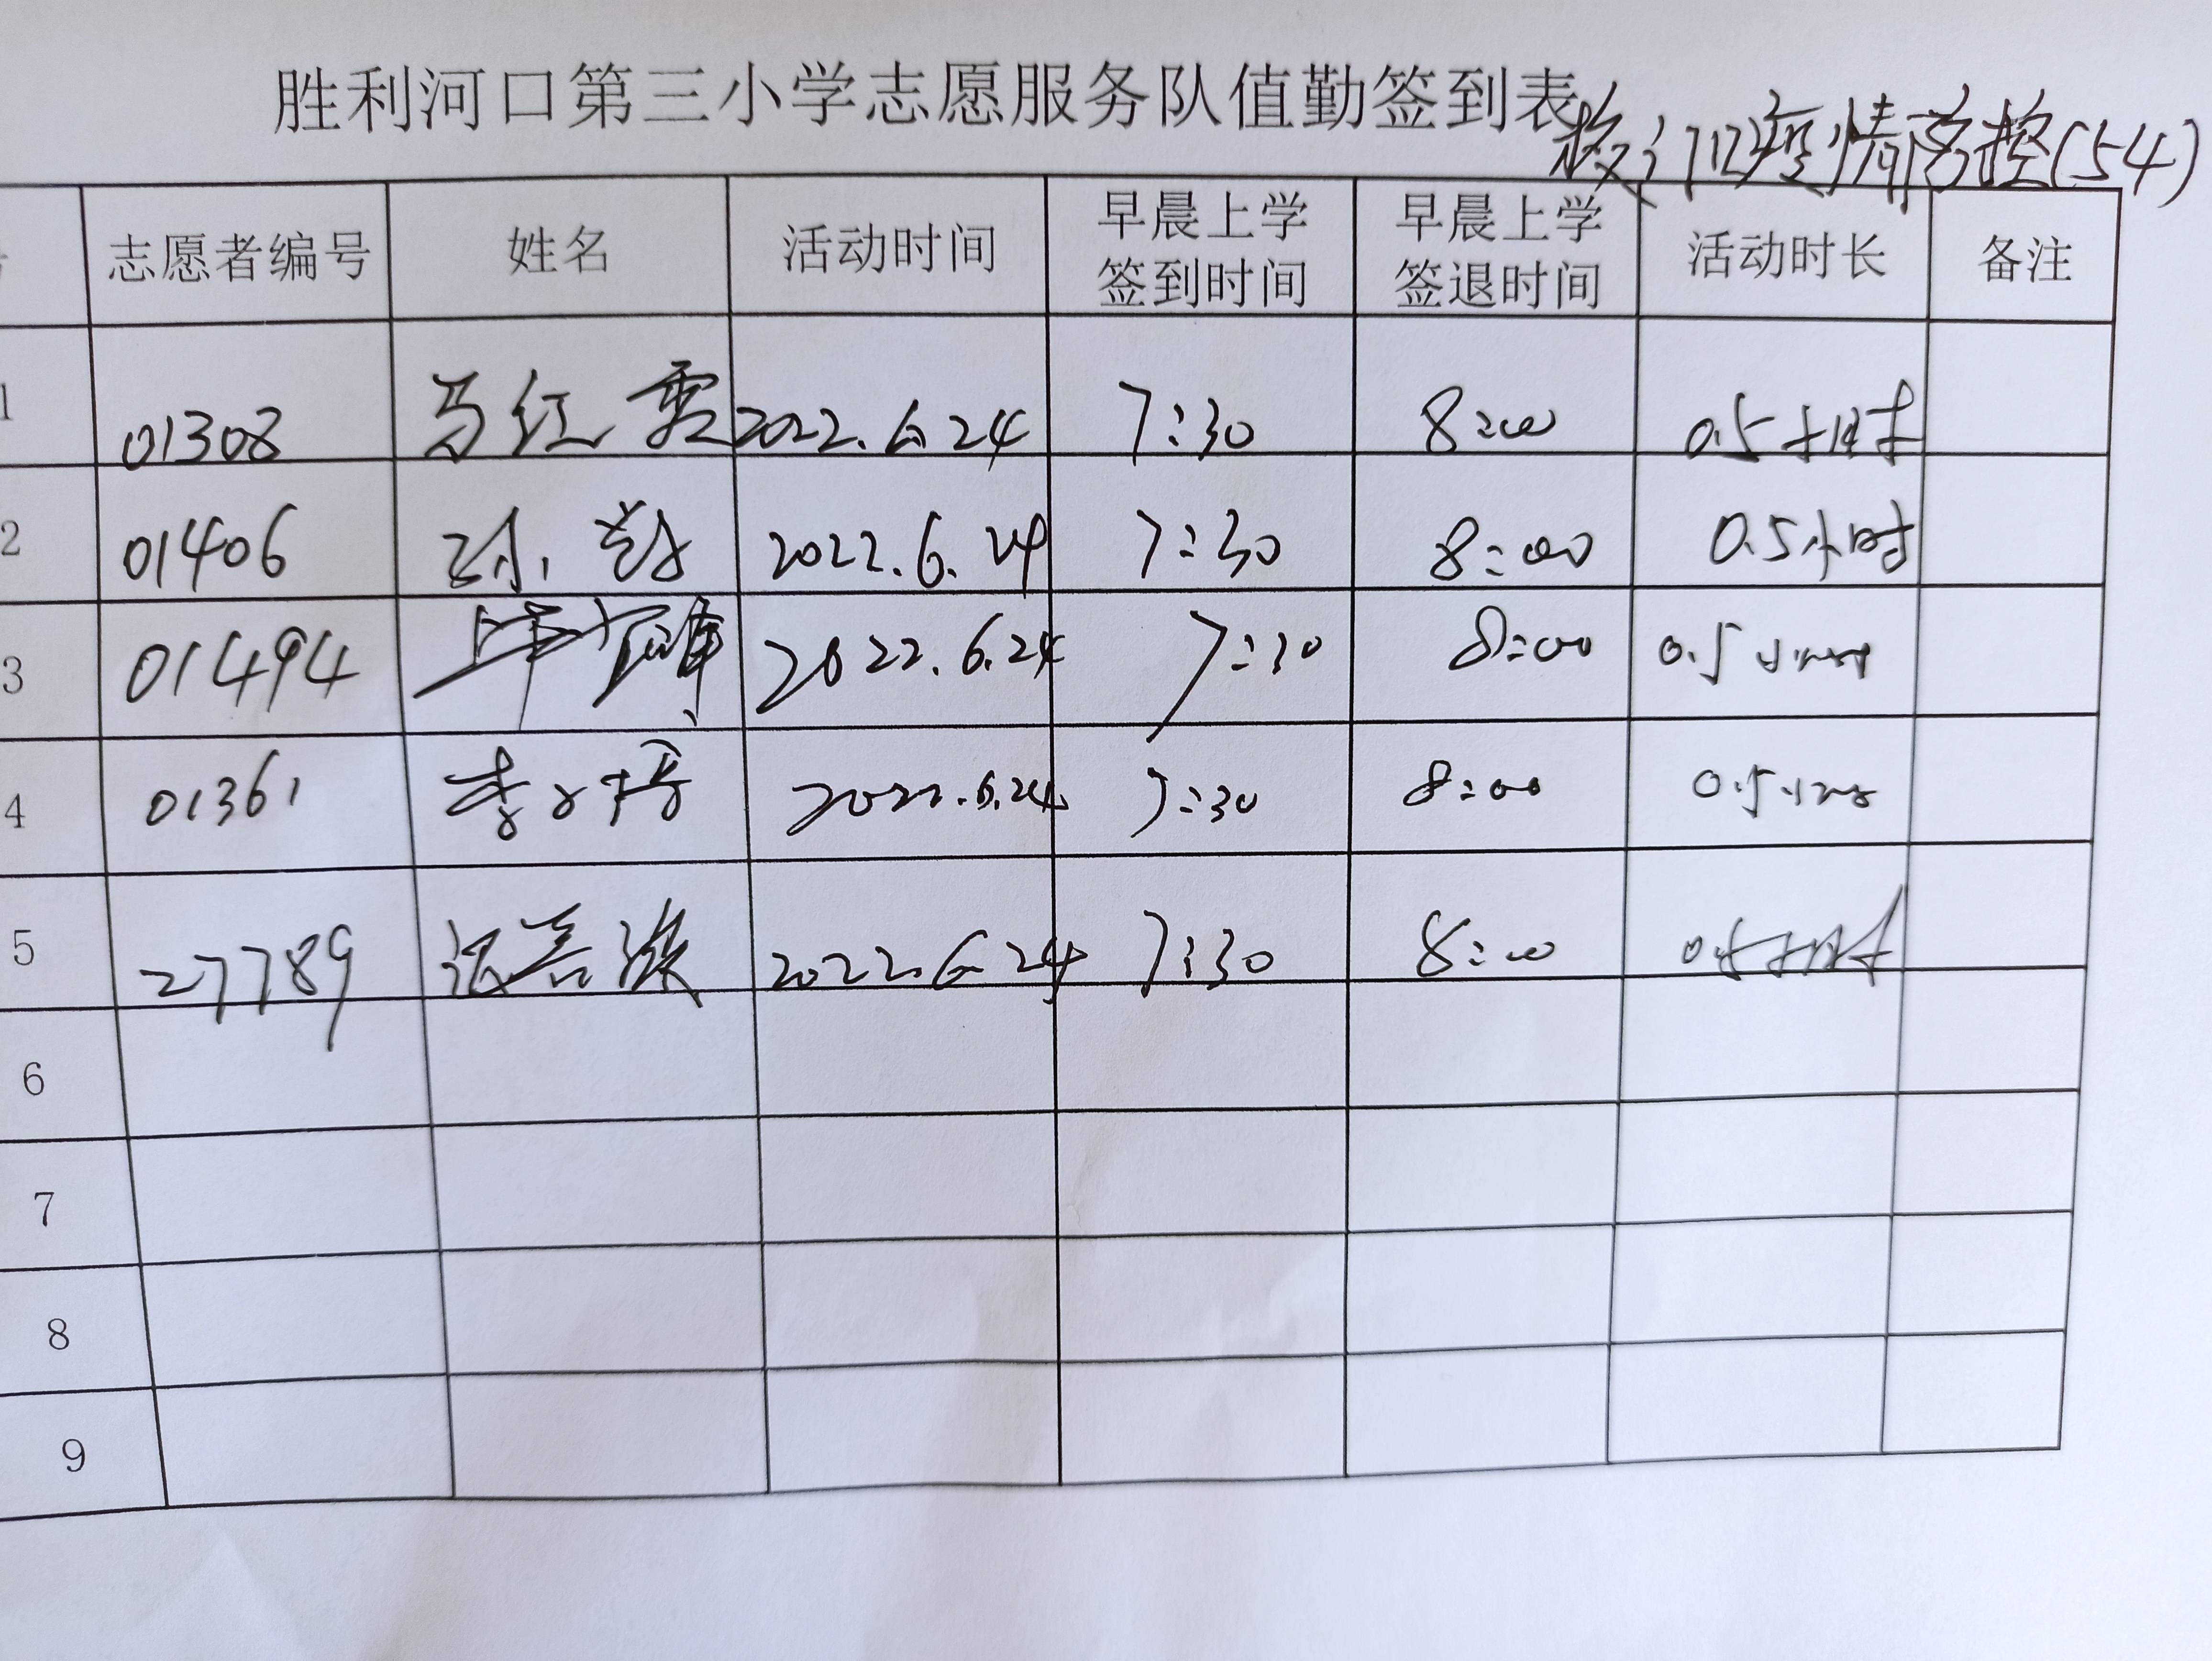 胜利河口第三小学志愿服务队值勤签到表
校门口疫情防控(54)
志愿者编号 姓名 活动时间 早晨上学签到时间 早晨上学签退时间 活动时长 备注
1 01308 马红霞 2022.6.24 7:30 8:00 0.5小时
2 01406 孙 2022.6.24 7:30 8:00 0.5小时
3 01494 2022.6.24 7:30 8:00 0.5小时
4 01361 李 2022.6.24 7:30 8:00 0.5小时
5 27789 2022.6.24 7:30 8:00 0.5小时
6
7
8
9